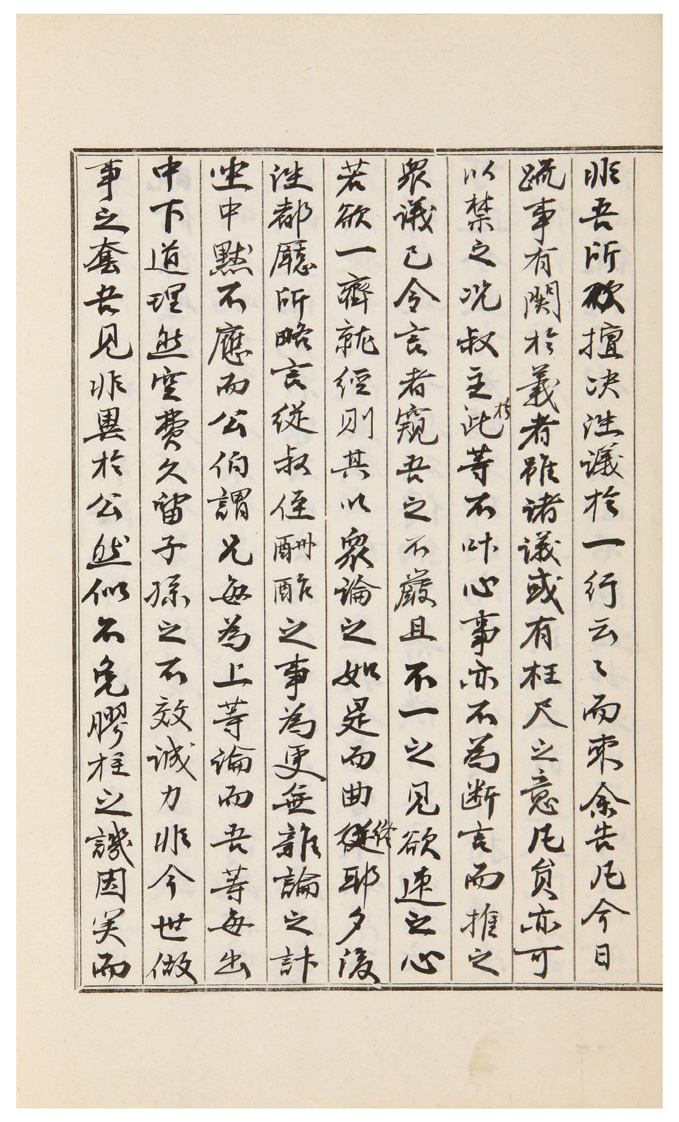 非吾所欲擅決泩議於一行云々而柬余告凡今日
疏事有関於義者雖諸議或有枉尺之意凡貟亦可
以禁之况叔主於此等不叶心事亦不為断言而推之
衆議已令言者窺吾之不嚴且不一之見欲速之心
若欲一齊就經則其以衆論之如是而曲從耶夕後
泩都廳所略言從叔侄酬酢之事為更無雜論之計
坐中默不應而公伯謂兄每為上等論而吾等每出
中下道理然空費久留子孫之不效誠力非今世做
事之套吾見非異於公然似不免膠柱之譏因笑而